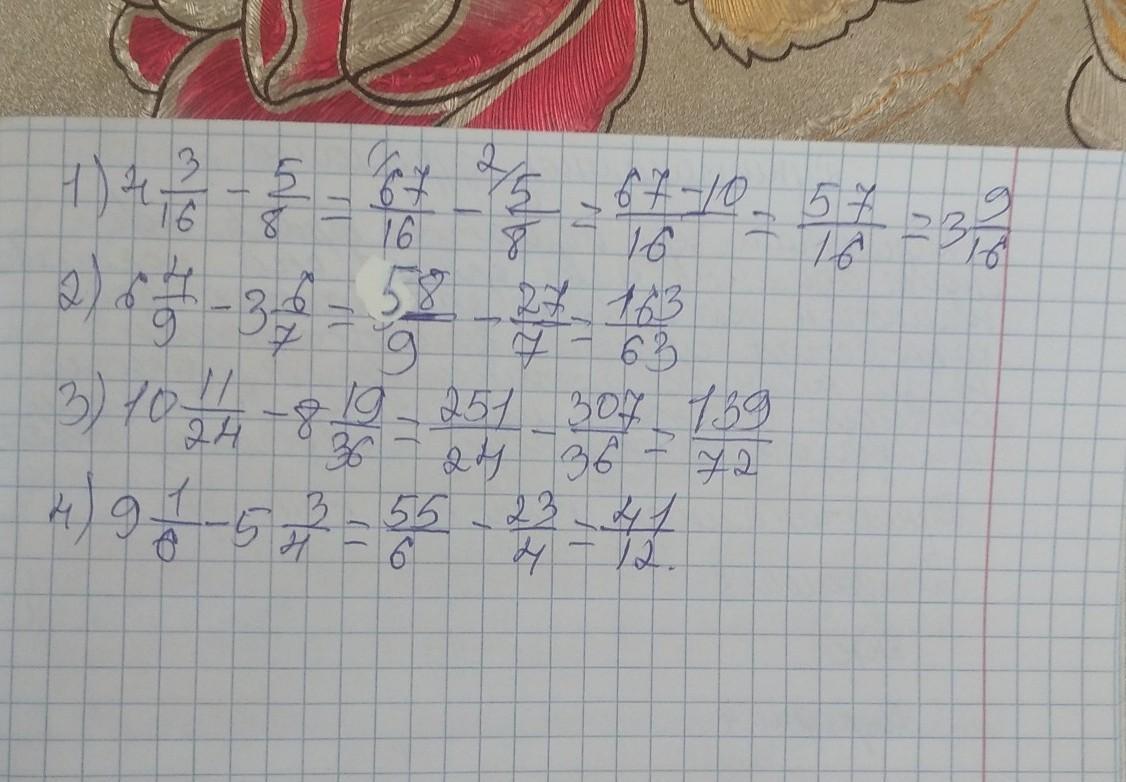 1) 4 3/16 - 5/8 = 1/ 67/16 - 2/ 5/8 = 67-10/16 = 57/16 = 3 9/16
2) 6 4/9 - 3 6/7 = 58/9 - 27/7 = 163/63
3) 10 11/24 - 8 19/36 = 251/24 - 307/36 = 139/72
4) 9 1/6 - 5 3/4 = 55/6 - 23/4 = 41/12.